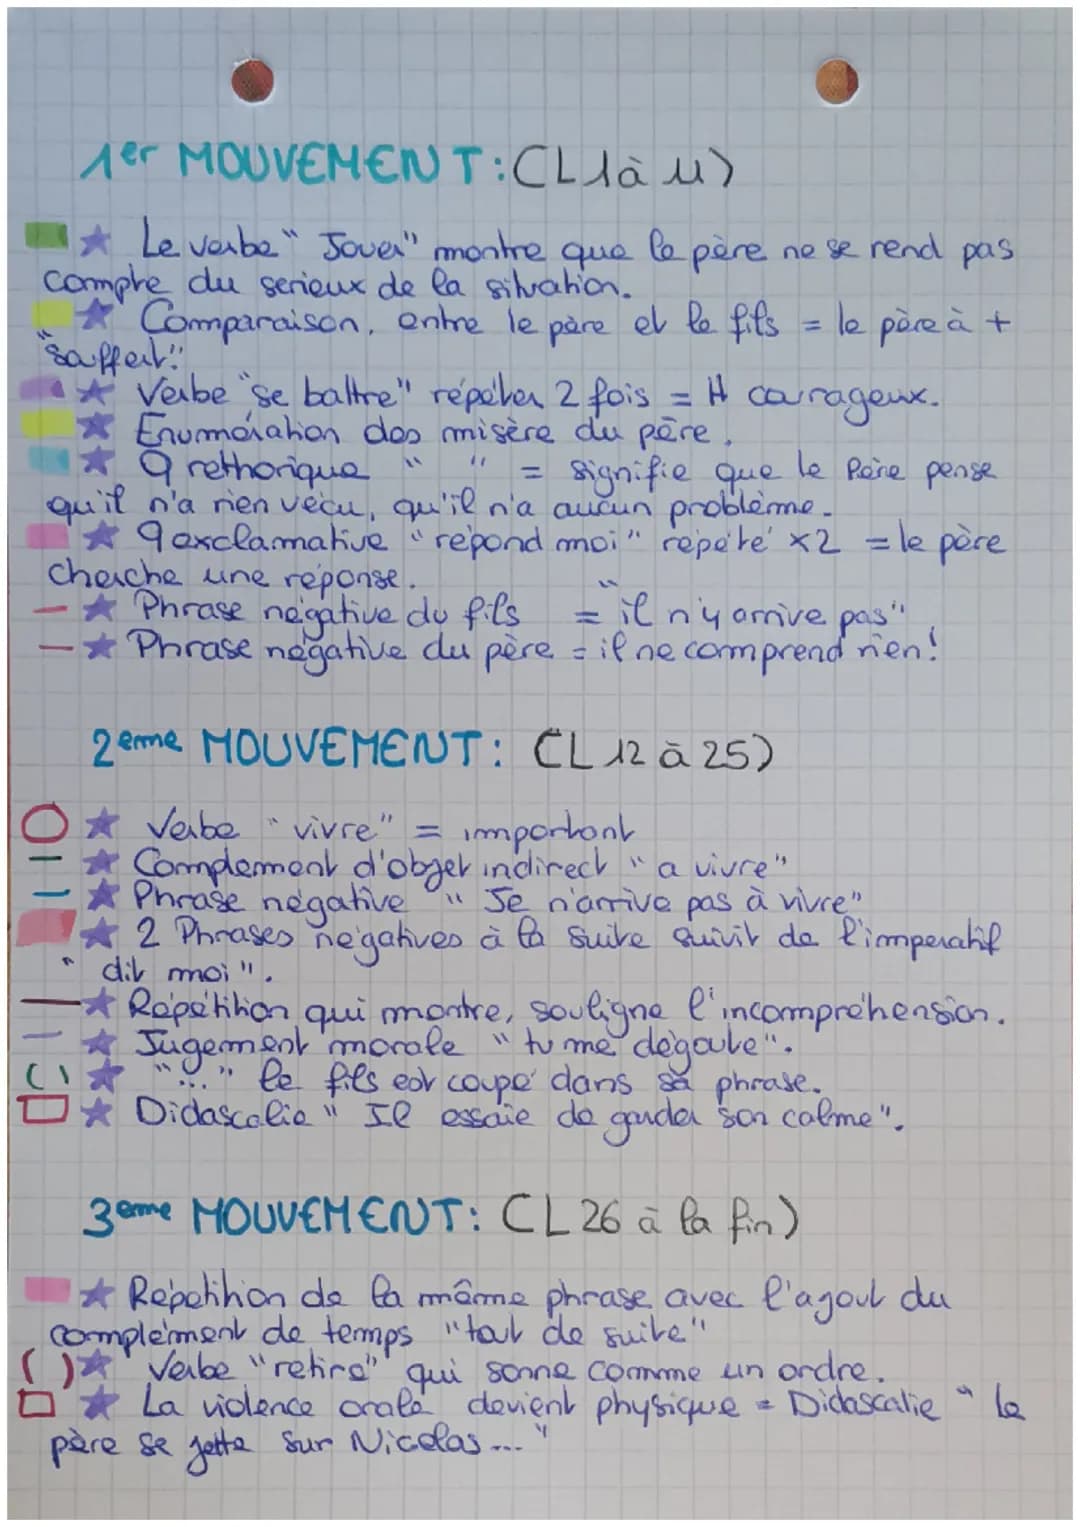 1er MOUVEMENT: (L1 à 11)
★ Le verbe "Jouer" montre que le père ne se rend pas
compte du serieux de la situation.
★ Comparaison, entre le père et le fils = le père à +
"souffert".
★ Verbe "se battre" répéter 2 fois = H courageux.
★ Enumération des misère du père.
★ Q rethorique " " = signifie que le Père pense
qu'il n'a rien vécu, qu'il n'a aucun problème.
★ Q exclamative "répond moi" répété x2 = le père
cherche une réponse.
★ Phrase négative du fils = "il n'y arrive pas"
★ Phrase négative du père = il ne comprend rien!
2eme MOUVEMENT: (L12 à 25)
★ Verbe "vivre" = important
★ Complement d'objet indirect "a vivre"
★ Phrase négative "Je n'arrive pas à vivre"
★ 2 Phrases négatives à la suite suivit de l'imperatif
"dit moi".
★ Répétition qui montre, souligne l'incompréhension.
★ Jugement morale "tu me dégoute".
( ) ★ "..." le fils est coupé dans sa phrase.
★ Didascalie "Il essaie de garder son calme".
3eme MOUVEMENT: (L26 à la fin)
★ Répétition de la même phrase avec l'ajout du
complément de temps "tout de suite"
( ) ★ Verbe "retire" qui sonne comme un ordre.
★ La violence orale devient physique = Didascalie "le
père se jette sur Nicolas..."